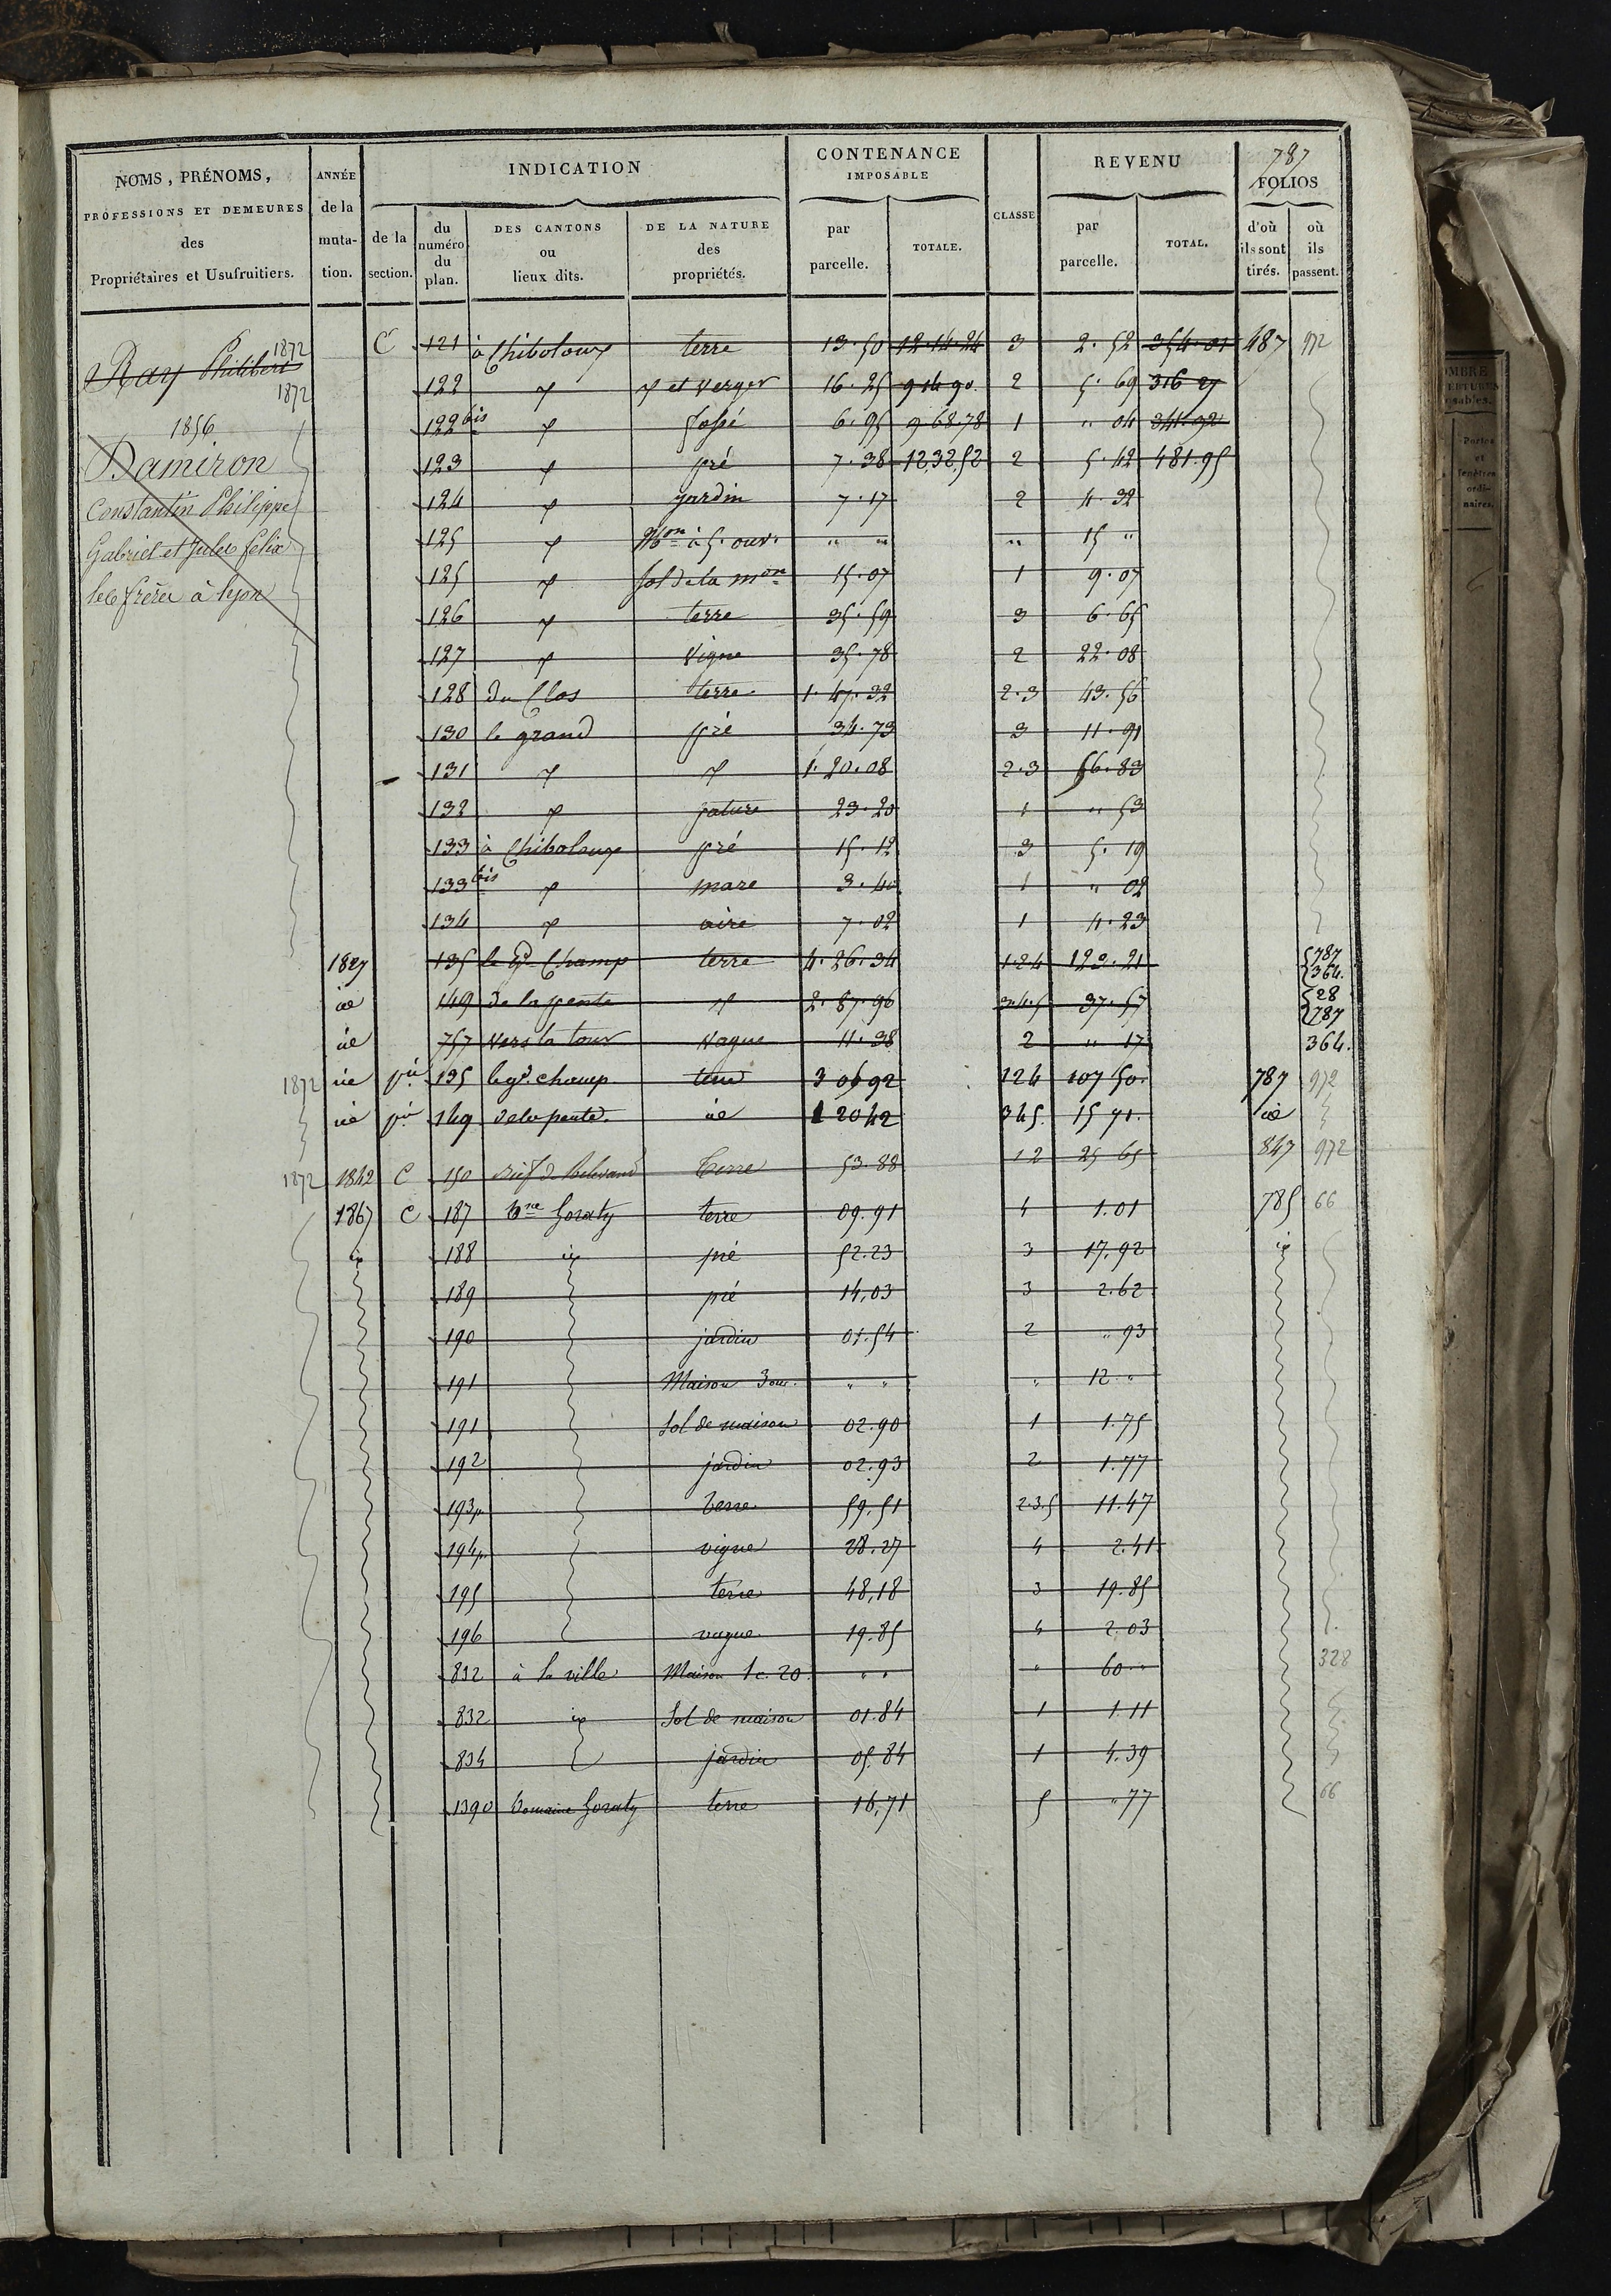 787
NOMS, PRÉNOMS, PROFESSIONS ET DEMEURES des Propriétaires et Usufruitiers.
ANNÉE de la muta- tion.
INDICATION
de la section.
du numéro du plan.
DES CANTONS ou lieux dits.
DE LA NATURE des propriétés.
CONTENANCE IMPOSABLE
par parcelle.
TOTALE.
CLASSE
REVENU
par parcelle.
TOTAL.
FOLIOS
d'où ils sont tirés.
où ils passent.
1872
Ray Philibert
1872
1856
Damiron
Constantin Philippe
Gabriel et Jules felix
les frères à lyon
C 121 à Chiboloux terre 13.50 12.14.24 3 2.52 354.01 487 972
122 et verger 16.25 9 14 90 2 5.69 316 27
122 bis fossé 6.95 9 68.78 1 " 04 341.92
123 pré 7.38 12 32.52 2 5.42 481.95
124 jardin 7.17 2 4.32
125 Mon à 5. ouv. " " " 15 "
125 sol de la mon 15.07 1 9.07
126 terre 35.59 3 6.65
127 vigne 35.78 2 22.08
128 du Clos terre 1.47.32 2.3 43.56
130 le grand pré 34.73 3 11.91
131 1.20.08 2.3 56.83
132 pature 23.20 1 " 53
133 à Chiboloux pré 15.12 3 5.19
133 bis mare 3.40 1 " 02
134 aire 7.02 1 4.23
1827 135 le gd Champ terre 4.26.34 1.2.4 123.21 787 364.
id 149 de la pente 2.87.96 3.4.5 37.57 28 787
id 757 vers la tour vague 11.38 2 " 17 364.
1872 id pie 135 le gd. champ terre 3 06 92 124 107 50. 787 972
id pie 149 de la pente id 1 20 42 345. 15 71. id
1872 1842 C 150 terre 53.88 12 25 65 847 972
1867 C 187 Dne Goraty terre 09.91 4 1.01 785 66
id 188 id pré 52.23 3 17.92 id
189 pré 14,03 3 2.62
190 jardin 01.54 2 " 93
191 Maison 3 ouv. " " " 12 "
191 Sol de maison 02.90 1 1.75
192 jardin 02.93 2 1.77
193p terre 59.51 2.3.5 11.47
194p vigne 28.27 4 2.41
195 terre 48,18 3 19.85
196 vague 19.85 4 2.03
832 à la ville Maison 1 c. 20 " " " 60 " 328
832 id Sol de maison 01.84 1 1.11
834 jardin 05.84 1 4.39
1390 Domaine Goraty terre 16,71 5 " 77 66